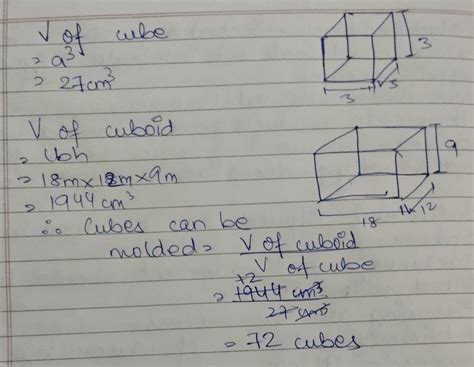 V of cube
= a³
= 27cm³
3
3
3
V of cuboid
= lbh
= 18m x 12m x 9m
= 1944 cm³
9
12
18
∴ Cubes can be
molded = V of cuboid
V of cube
72
= 1944 cm³
27 cm³
= 72 cubes